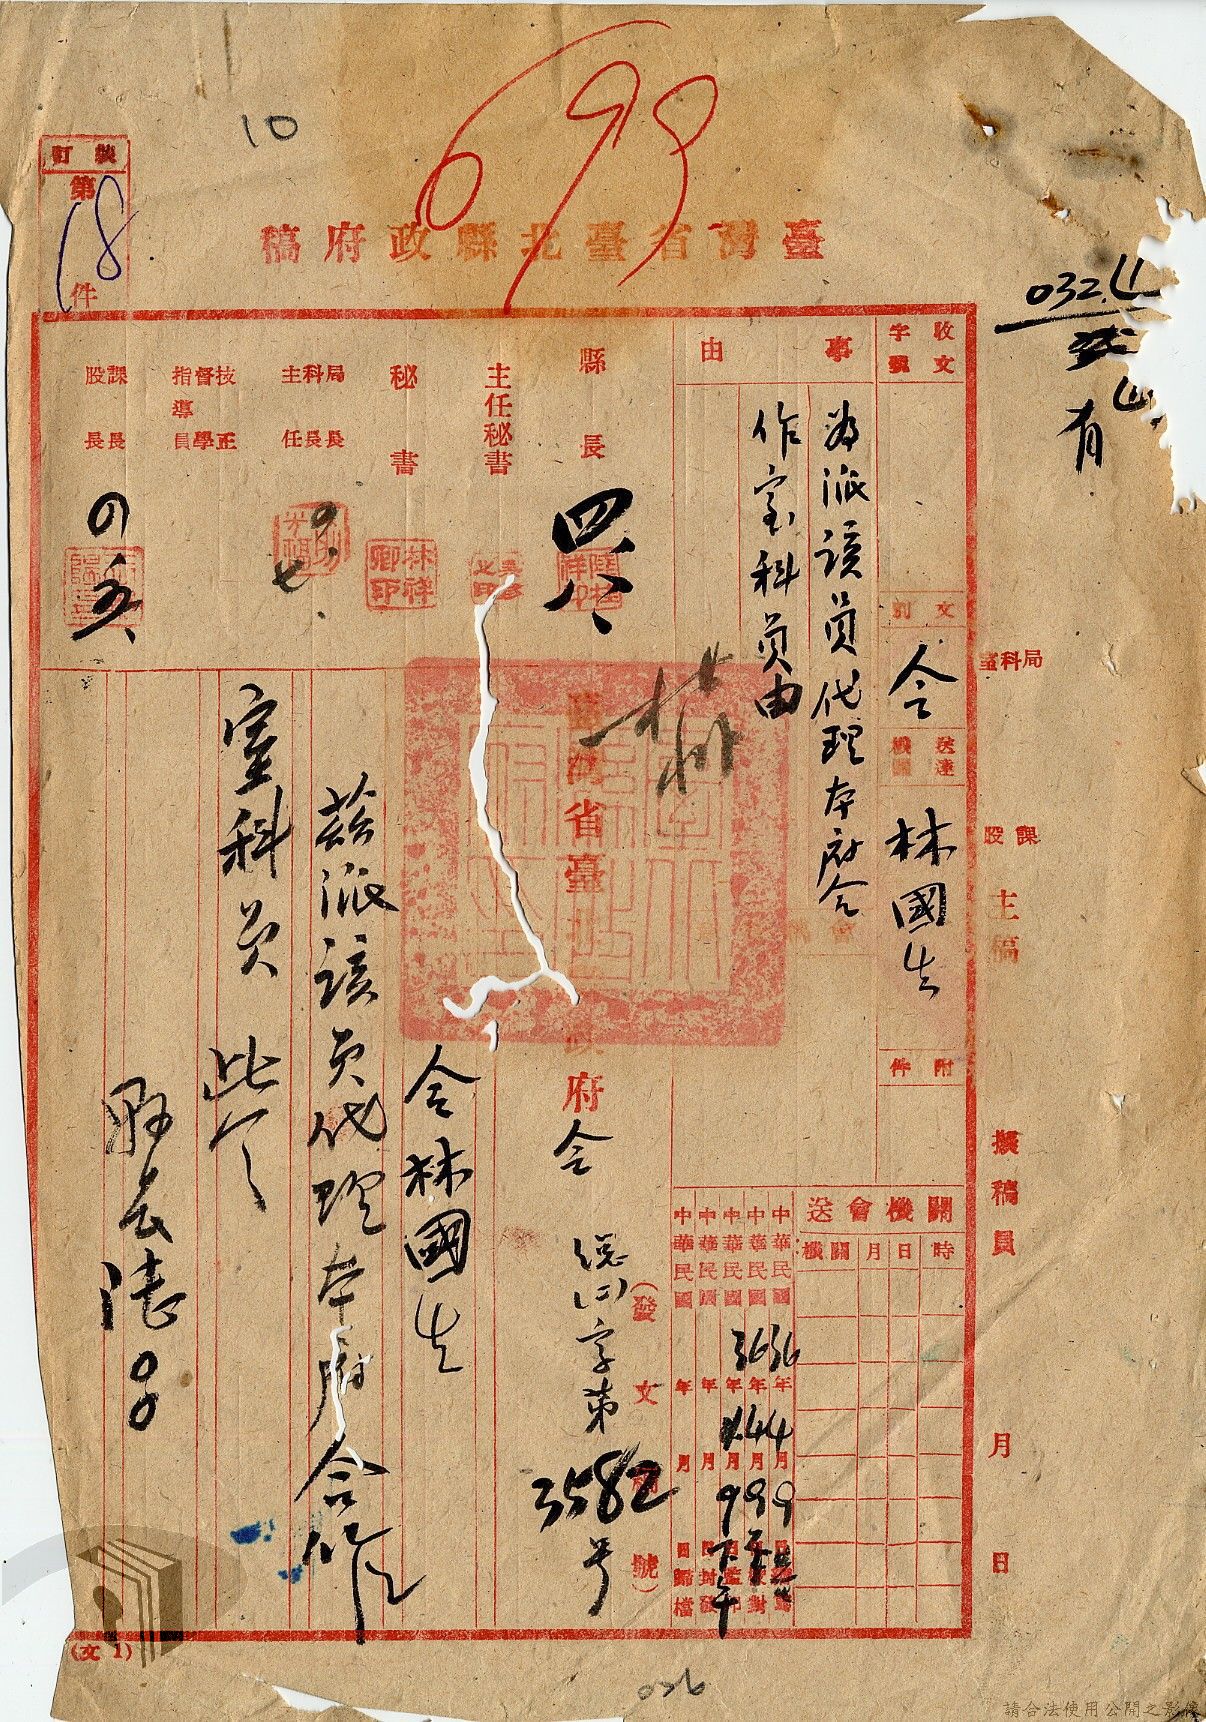 10
693
裝訂
第
18
件
臺灣省臺北縣政府稿
032.4
有
收文
字號
文別
令
送達機關
林國生
附件
事由
為派該員代理本府合
作室科員由
縣長
四八
主任秘書
秘書
林祥卿印
局長
科長
主任
四、七、
技正
督學
指導員
課長
股長
四五
局科室
課股
主稿
擬稿員
月
日
關機會送
時
日
月
關機
中華民國36年4月9日
中華民國36年4月9日
中華民國年月9日
中華民國年月日封發
中華民國年月日歸檔
臺灣省臺北縣政府令
(發文 號)
總(二)字第3582号
令林國生
茲派該員代理本府合作
室科員 此令
縣長陸〇〇
(文1)
036
請合法使用公開之影像